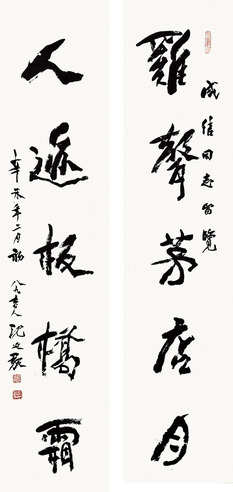 雞聲茅店月
成信同志留覽
人迹板橋霜
辛未年二月初
八九老人沈延毅